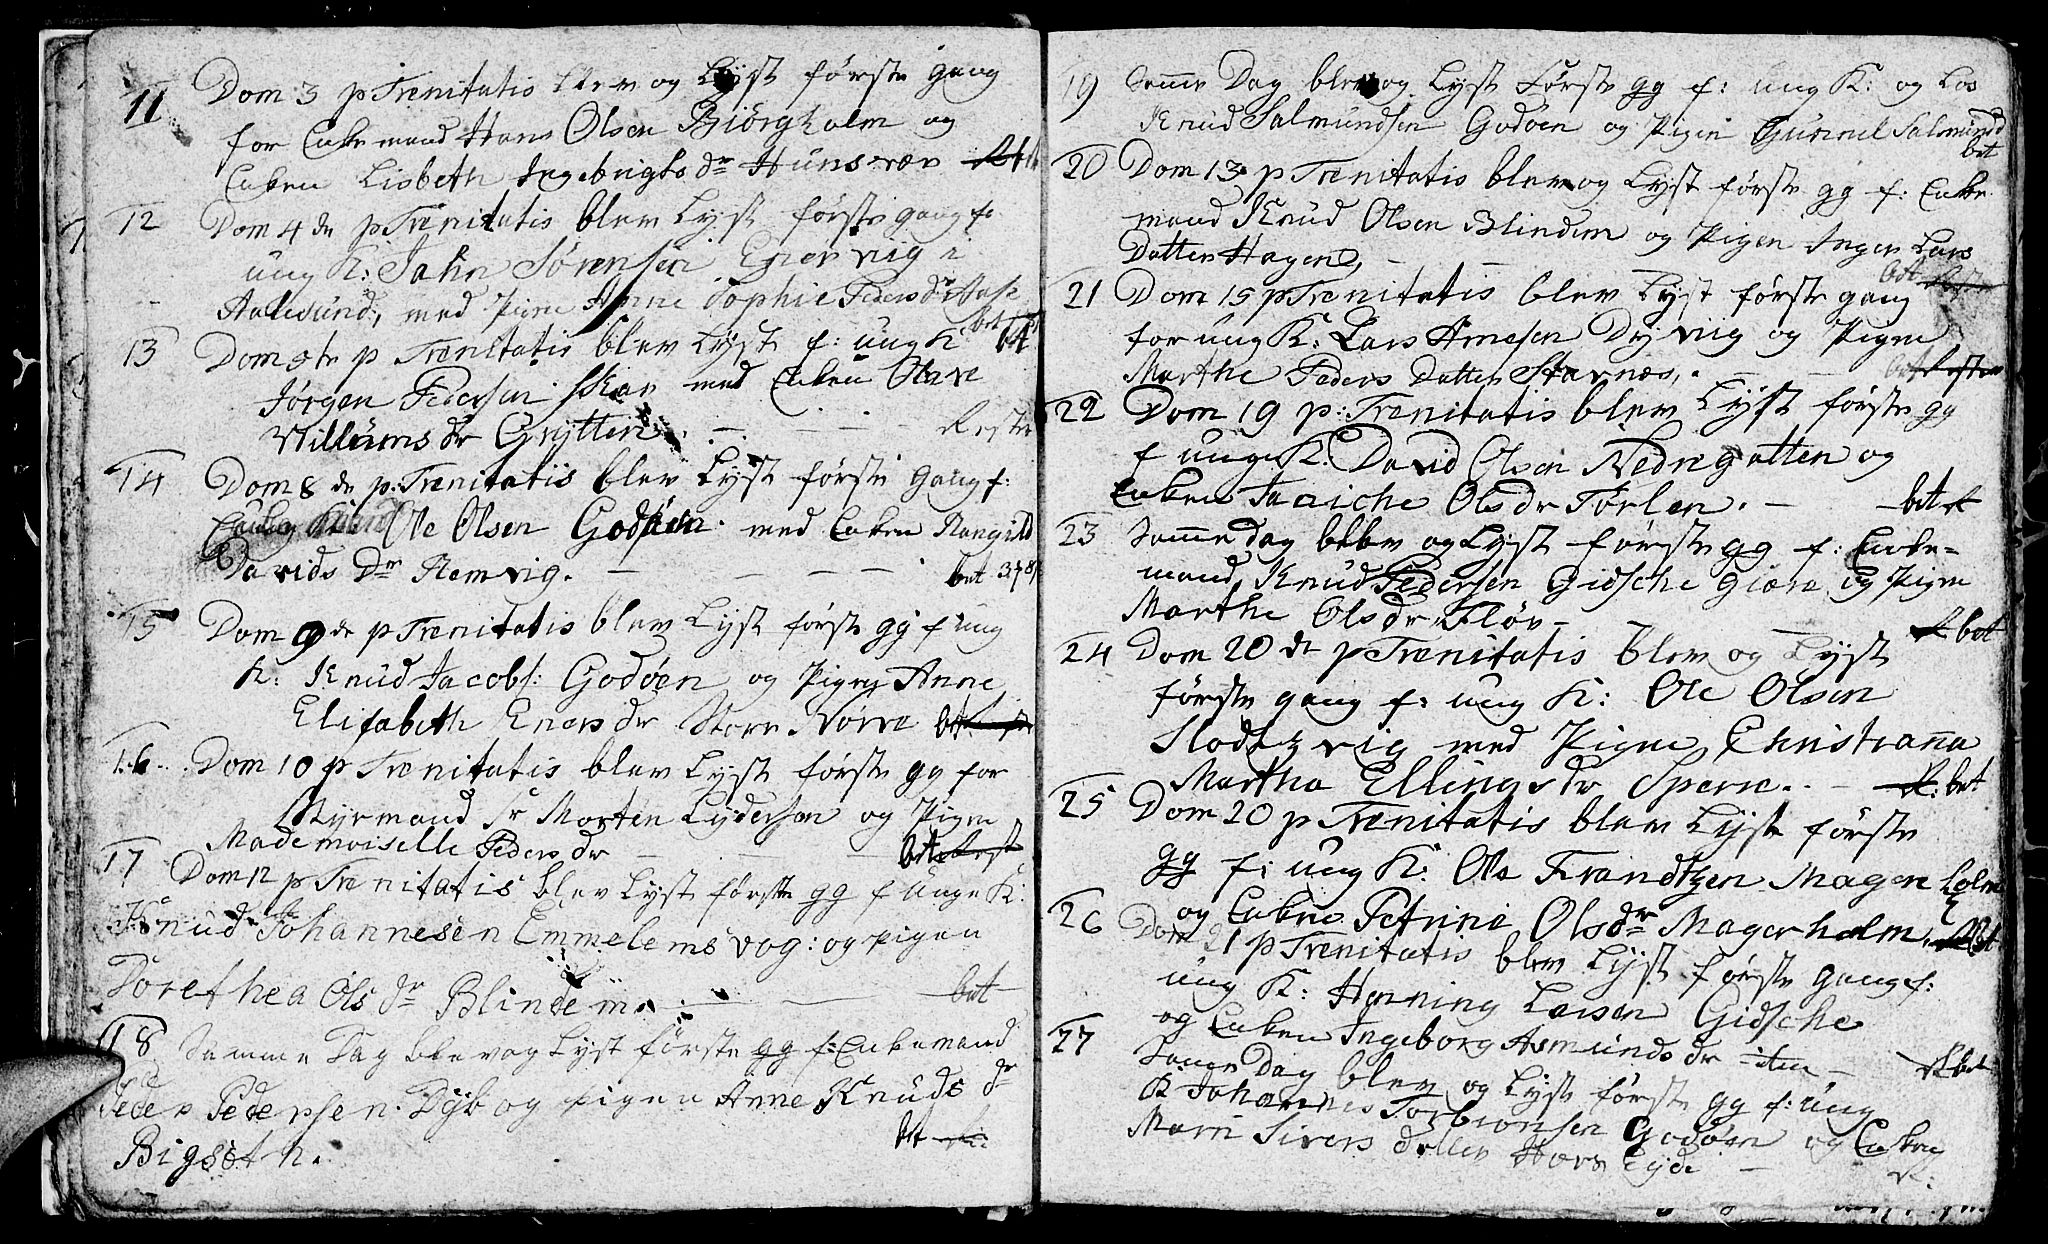 11 Dom 3 p Trenitatis blev og Lyst første gang
for Enkemand Hans Olsen Biörgholm og
Enken Lisbeth Ingebrigts dr Hunsvær
12 Dom 4 de p Trenitatis blev Lyst første gang f.
ung K: Jahn Sörensen Egiervig i
Aalesund, med Pigen Anne Sophie Peders dr Aase
bet
13 Dom 5te p Trenitatis blev Lyst f: ung K
Jörgen Pedersen Skar med Enken Olave
Villums dr Grytten. - - - - Rester
14 Dom 8 de p: Trenitatis blev Lyst første Gang f:
Ole Olsen Godöen. med Enken Rangild
Davids Dr Remvig. - - - - bet 378
15 Dom 9 de p Trenitatis blev Lyst første gg f ung
K: Knud Jacobs: Godöen og Pigen Anne
Elisabeth Eners dr Store Nörve bet
16 Dom 10 p Trenitatis blev Lyst første gg for
Styrmand Sr Morten Lydersen og Pigen
Mademoiselle Peders dr - - - bet
17 Dom 12 p Trenitatis blev Lyst første gg f Unge K:
Knud Johannesen Emmelemsvog: og pigen
Dorethea Ols dr Blindem. - - bet
18 Samme Dag blev og Lyst förste gg f: Enkemand
Peder Pedersen. Dyb og pigen Anne Knuds dr
bet
Bigseth.
19 Samme Dag blev og Lyst Første gg f: ung K: og Los
Knud Salmundsen Godöen og Pigen Gunnil Salmunds d
bet
20 Dom 13 p Trenitatis blev og Lyst første gg f: Enke
mand Knud Olsen Blindem og Pigen Inger Lars
Datter Hagen, - - bet
21 Dom 15 p Trenitatis blev Lyst første gang
for ung K: Lars Arnesen Dyrvig og Pigen
Marthe Peders Datter Stavnes. - - bet Rester
22 Dom 19 p: Trenitatis blev Lyst første gg
f unge K. David Olsen Nedregotten og
Enken Taaiche Ols dr Törlen. - - bet
23 Samme dag blev og Lyst første gg f: Enke-
mand Knud Pedersen Gidsche Giære og Pigen
Marthe Ols dr Flöv - - - bet
24 Dom 20 de p Trenitatis blev og Lyst
første gang f: ung K: Ole Olsen
Slodtzvig med Pigen Christiana
Martha Ellings dr Sperre. - bet
25 Dom 20 p Trenitatis blev Lyst første
gg f: ung K: Ole Frandtzen Magerholm
og Enken Petrine Ols dr Magerholm. bet
26 Dom 21 p Trenitatis blev Lyst første gang f:
ung K: Henning Larsen Gidsche
og Enken Ingeborg Asmunds dr item - bet
27 Samme Dag blev og Lyst første gg f: ung
K Johannes Torbiönsen Godöen og Enken
Marri Sivers datter Hovs Eyde - R: